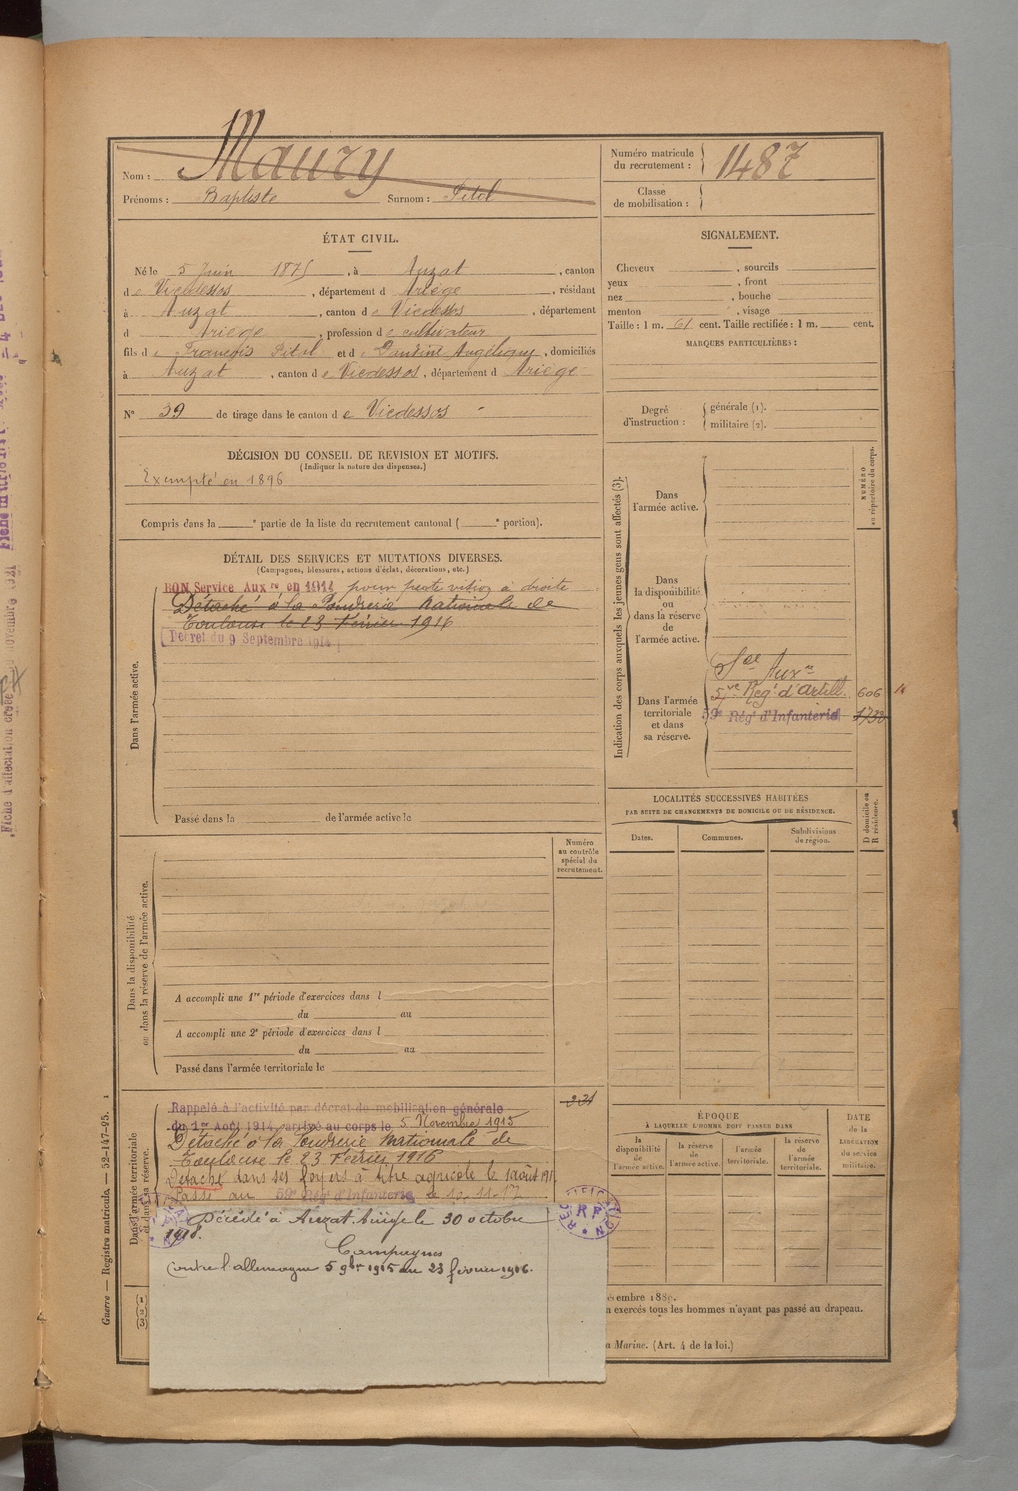 Nom : Maury
Prénoms : Baptiste Surnom : Pitol
Numéro matricule
du recrutement : 1487
Classe
de mobilisation :
ÉTAT CIVIL.
Né le 5 Juin 1875, à Auzat, canton
de Vicdessos, département d Ariège, résidant
à Auzat, canton de Vicdessos, département
d Ariège, profession de cultivateur
fils de François Pitol et de Dandine Angélique, domiciliés
à Auzat, canton de Vicdessos, département d Ariège
N° 39 de tirage dans le canton de Vicdessos
DÉCISION DU CONSEIL DE REVISION ET MOTIFS.
(Indiquer la nature des dispenses.)
Exempté en 1896
Compris dans la e partie de la liste du recrutement cantonal ( e portion).
SIGNALEMENT.
Cheveux , sourcils
yeux , front
nez , bouche
menton , visage
Taille : 1 m. 61 cent. Taille rectifiée : 1 m. cent.
MARQUES PARTICULIÈRES :
Degré
d'instruction :
générale (1).
militaire (2).
DÉTAIL DES SERVICES ET MUTATIONS DIVERSES.
(Campagnes, blessures, actions d'éclat, décorations, etc.)
Dans l'armée active.
BON Service Aux re en 1914 pour perte vision à droite
Détaché à la Poudrerie Nationale de
Toulouse le 23 Février 1916
Décret du 9 Septembre 1914
Passé dans la de l'armée active le
Indication des corps auxquels les jeunes gens sont affectés (3).
NUMÉRO
au répertoire du corps.
Dans
l'armée active.
Dans
la disponibilité
ou
dans la réserve
de
l'armée active.
Dans l'armée
territoriale
et dans
sa réserve.
Sce Auxre
57e Regt d'Artill. 606
59e Rég' d'Infanterie 1732
LOCALITÉS SUCCESSIVES HABITÉES
PAR SUITE DE CHANGEMENTS DE DOMICILE OU DE RÉSIDENCE.
D domicile ou
R résidence.
Dates.
Communes.
Subdivisions
de région.
Dans la disponibilité
ou dans la réserve de l'armée active.
Numéro
au contrôle
spécial du
recrutement.
A accompli une 1re période d'exercices dans l
du au
A accompli une 2e période d'exercices dans l
du au
Passé dans l'armée territoriale le
Dans l'armée territoriale
et dans sa réserve.
Rappelé à l'activité par décret de mobilisation générale
du 1er Août 1914, arrivé au corps le 5 Novembre 1915
Détaché à la Poudrerie Nationale de
Toulouse le 23 Février 1916
Détaché dans ses foyers à titre agricole le 1 août 1917
Passé au 59e Rég' d'Infanterie le 10-11-17
Décédé à Auzat, Ariège le 30 octobre
1918.
Campagnes
Contre l'allemagne 5 9bre 1915 au 23 février 1916.
RECTIFICATION
R
ÉPOQUE
À LAQUELLE L'HOMME DOIT PASSER DANS
la
disponibilité
de
l'armée active.
la réserve
de
l'armée active.
l'armée
territoriale.
la réserve
de
l'armée
territoriale.
DATE
de la
LIBÉRATION
du service
militaire.
1
2
3
n exercés tous les hommes n'ayant pas passé au drapeau.
a Marine. (Art. 4 de la loi.)
Guerre — Registre matricule. — 52-147-95.